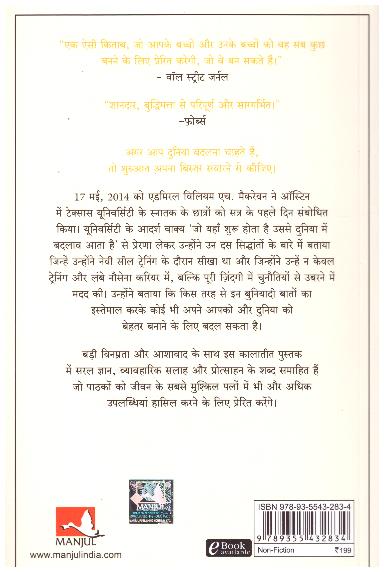 "एक ऐसी किताब, जो आपके बच्चों और उनके बच्चों को वह सब कुछ
बनने के लिए प्रेरित करेगी, जो वे बन सकते हैं।"
- वॉल स्ट्रीट जर्नल
"शानदार, बुद्धिमत्ता से परिपूर्ण और सारगर्भित।"
-फ़ोर्ब्स
अगर आप दुनिया बदलना चाहते हैं,
तो शुरुआत अपना बिस्तर सँवारने से कीजिए।
17 मई, 2014 को एडमिरल विलियम एच. मैकरेवन ने ऑस्टिन
में टेक्सास यूनिवर्सिटी के स्नातक के छात्रों को सत्र के पहले दिन संबोधित
किया। यूनिवर्सिटी के आदर्श वाक्य 'जो यहाँ शुरू होता है उससे दुनिया में
बदलाव आता है' से प्रेरणा लेकर उन्होंने उन दस सिद्धांतों के बारे में बताया
जिन्हें उन्होंने नेवी सील ट्रेनिंग के दौरान सीखा था और जिन्होंने उन्हें न केवल
ट्रेनिंग और लंबे नौसेना करियर में, बल्कि पूरी ज़िंदगी में चुनौतियों से उबरने में
मदद की। उन्होंने बताया कि किस तरह से इन बुनियादी बातों का
इस्तेमाल करके कोई भी अपने आपको और दुनिया को
बेहतर बनाने के लिए बदल सकता है।
बड़ी विनम्रता और आशावाद के साथ इस कालातीत पुस्तक
में सरल ज्ञान, व्यावहारिक सलाह और प्रोत्साहन के शब्द समाहित हैं
जो पाठकों को जीवन के सबसे मुश्किल पलों में भी और अधिक
उपलब्धियां हासिल करने के लिए प्रेरित करेंगे।
MANJUL
www.manjulindia.com
MANJUL
eBook
available
ISBN 978-93-5543-283-4
9 789355 432834
Non-Fiction
₹199